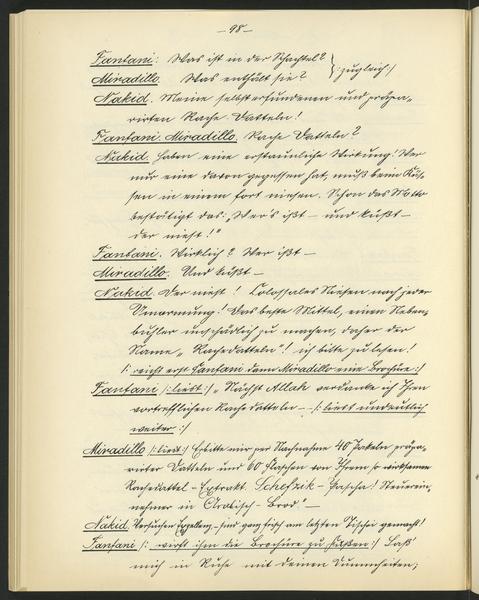 — 98 —
Fantani: Was ist in der Schachtel?
Miradillo. Was enthält sie? } /:zugleich:/
Nakid. Meine selbst erfundenen und präpa-
rirten Rache-Datteln!
Fantani. Miradillo. Rache Datteln?
Nakid. Haben eine erstaunliche Wirkung! Wer
nur eine davon gegessen hat, muß beim Küs-
sen in einem fort niesen. Schon das Motto
bestätigt das: „Wer's ißt – und küßt –
der niest!"
Fantani. Wirklich? Wer ißt –
Miradillo. Und küßt –
Nakid. Der niest! Colossales Niesen nach jeder
Umarmung! Das beste Mittel, einen Neben-
buhler unschädlich zu machen, daher der
Name „Rachedatteln"! ich bitte zu lesen!
/: reicht erst Fantani dann Miradillo eine Brochüre :/
Fantani /: liest :/ „Nächst Allah verdanke ich Ihren
vortrefflichen Rachedatteln – – /: liest undeutlich
weiter :/
Miradillo /: liest :/ Erbitte mir per Nachnahme 40 Paketen präpa-
rirter Datteln und 60 Flaschen von Ihrem so wirksamen
Rachedattel-Extrakt. Schefzik-Pascha! Steuerein-
nehmer in Arabisch-Brod" –
Nakid. Versuchen Exzellenz – sind ganz frisch am letzten gemacht!
Fantani /: wirft ihm die Brochüre zu Füßen :/ Laß'
mich in Ruhe mit deinen Dummheiten;